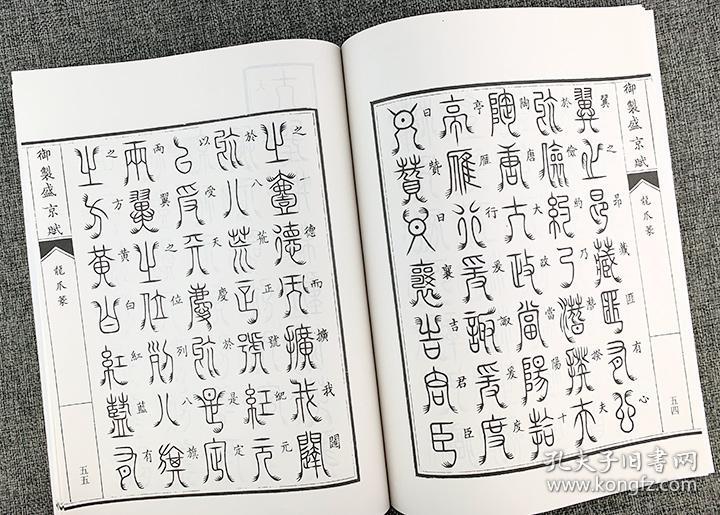 御製盛京賦
龍爪篆
五四
翼之昂藏匪有心
於儉約乃潛揆夫
陶唐大政當陽十
亭雁行爰諏爰度
曰贊曰襄吉君臣
之一德而擴我闢
於八荒正號紀元
以受天慶於是定
兩翼之位列八旗
之方黃白紅藍有
御製盛京賦
龍爪篆
五五
孔夫子旧书网
www.kongfz.com